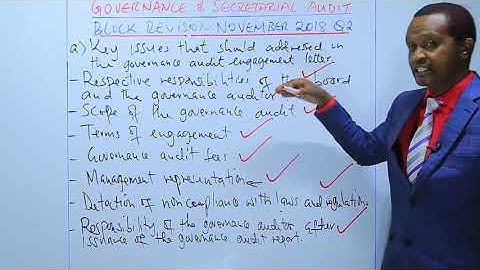 GOVERNANCE & SECRETARIAL AUDIT
BLOCK REVISION-NOVEMBER 2018 Q2
a) Key issues that should addressed in
the governance audit engagement letter
- Respective responsibilities of the board
and the governance auditor
- Scope of the governance audit
- Terms of engagement
- Governance audit fees
- Management representation
- Detection of noncompliance with laws and regulations
- Responsibility of the governance auditor after
issuance of the governance audit report.